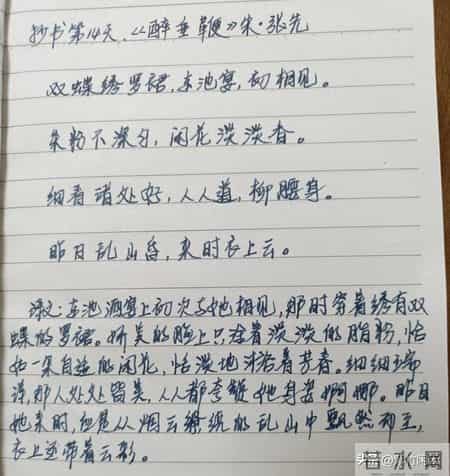 抄书第14天、《醉垂鞭》宋·张先
双蝶绣罗裙,东池宴,初相见。
朱粉不深匀,闲花淡淡香。
细看诸处好,人人道,柳腰身。
昨日乱山昏,来时衣上云。
译文:东池酒宴上初次与她相见,那时穿着绣有双
蝶的罗裙。娇美的脸上只涂着淡淡的脂粉,恰
如一朵自在的闲花,恬淡地沐浴着芳春。细细端
详,那人处处留美,人人都夸赞她身姿婀娜。昨日
她来时,但是从烟云缭绕的乱山中飘然而至,
衣上还带着云彩。
头条